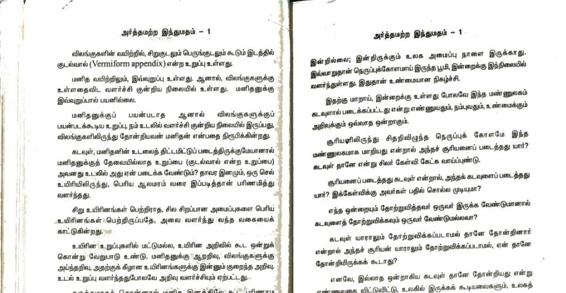 அர்த்தமற்ற இந்துமதம் – 1
விலங்குகளின் வயிற்றில், சிறுகுடலும் பெருங்குடலும் கூடும் இடத்தில்
குடல்வால் (Vermiform appendix) என்ற உறுப்பு உள்ளது.
மனித வயிற்றிலும், இவ்வுறுப்பு உள்ளது. ஆனால், விலங்குகளுக்கு
உள்ளதைவிட வளர்ச்சி குன்றிய நிலையில் உள்ளது. மனிதனுக்கு
இவ்வுறுப்பால் பயனில்லை.
மனிதனுக்குப் பயன்படாத ஆனால் விலங்குகளுக்குப்
பயன்படக்கூடிய உறுப்பு நம் உடலில் வளர்ச்சி குன்றிய நிலையில் இருப்பது,
விலங்குகளிலிருந்து தோன்றியவன் மனிதன் என்பதை நிரூபிக்கின்றது.
கடவுள், மனிதனின் உடலைத் திட்டமிட்டுப் படைத்திருக்குமேயானால்
மனிதனுக்குத் தேவையில்லாத உறுப்பை (குடல்வால் என்ற உறுப்பை)
அவனது உடலில் அது ஏன் படைக்க வேண்டும்? தாவர இனமும், ஒரு செல்
உயிரியிலிருந்து, பெரிய ஆலமரம் வரை இப்படித்தான் பரிணமித்து
வளர்ந்தது.
சிறு உயிரினங்கள் பெற்றிராத, சில சிறப்பான அமைப்புகளை பெரிய
உயிரினங்கள் பெற்றிருப்பதே, அவை வளர்ந்து வந்த வகையைக்
காட்டுகின்றது.
உயிரின உறுப்புகளில் மட்டுமல்ல, உயிரின அறிவில் கூட ஒன்றுக்
கொன்று வேறுபாடு உண்டு. மனிதனுக்கு ஆறறிவு, விலங்குகளுக்கு
அய்ந்தறிவு, அதற்குக் கீழான உயிரினங்களுக்கு இன்னும் குறைந்த அறிவு.
உடல் உறுப்பு வளர்ந்ததுபோலவே அறிவு வளர்ச்சியும் ஏற்பட்டது.
அர்த்தமற்ற இந்துமதம் – 1
இன்றில்லை; இன்றிருக்கும் உலக அமைப்பு நாளை இருக்காது.
இவ்வாறுதான் நெருப்புக்கோளமாய் இருந்த பூமி, இன்றைக்கு இந்நிலையில்
வளர்ந்துள்ளது. இதுதான் உண்மையான நிகழ்ச்சி.
இதற்கு மாறாய், இன்றைக்கு உள்ளது போலவே இந்த மண்ணுலகம்
கடவுளால் படைக்கப்பட்டது என்று எண்ணுவதும், நம்புவதும், உண்மைக்கும்
அறிவுக்கும் ஒவ்வாத ஒன்றாகும்.
சூரியனிலிருந்து சிதறிவிழுந்த நெருப்புக் கோளமே இந்த
மண்ணுலகமாக மாறியது என்றால் அந்தச் சூரியனைப் படைத்தது யார்?
கடவுள் தானே என்று சிலர் கேள்வி கேட்க வாய்ப்புண்டு.
சூரியனைப் படைத்தது கடவுள் என்றால், அந்தக் கடவுளைப் படைத்தது
யார்? இக்கேள்விக்கு அவர்கள் பதில் சொல்ல முடியுமா?
எந்த ஒன்றையும் தோற்றுவித்தவர் ஒருவர் இருக்க வேண்டுமானால்
கடவுளைத் தோற்றுவிக்கவும் ஒருவர் வேண்டுமல்லவா?
கடவுள் யாராலும் தோற்றுவிக்கப்படாமல் தானே தோன்றினார்
என்றால் அந்தச் சூரியன் யாராலும் தோற்றுவிக்கப்படாமல், ஏன் தானே
தோன்றியிருக்கக் கூடாது?
எனவே, இல்லாத ஒன்றாகிய கடவுள் தானே தோன்றியது என்று
விட்டுவிட்டு, உலகில் இருக்கக் கூடியவைகளும், உலகக்